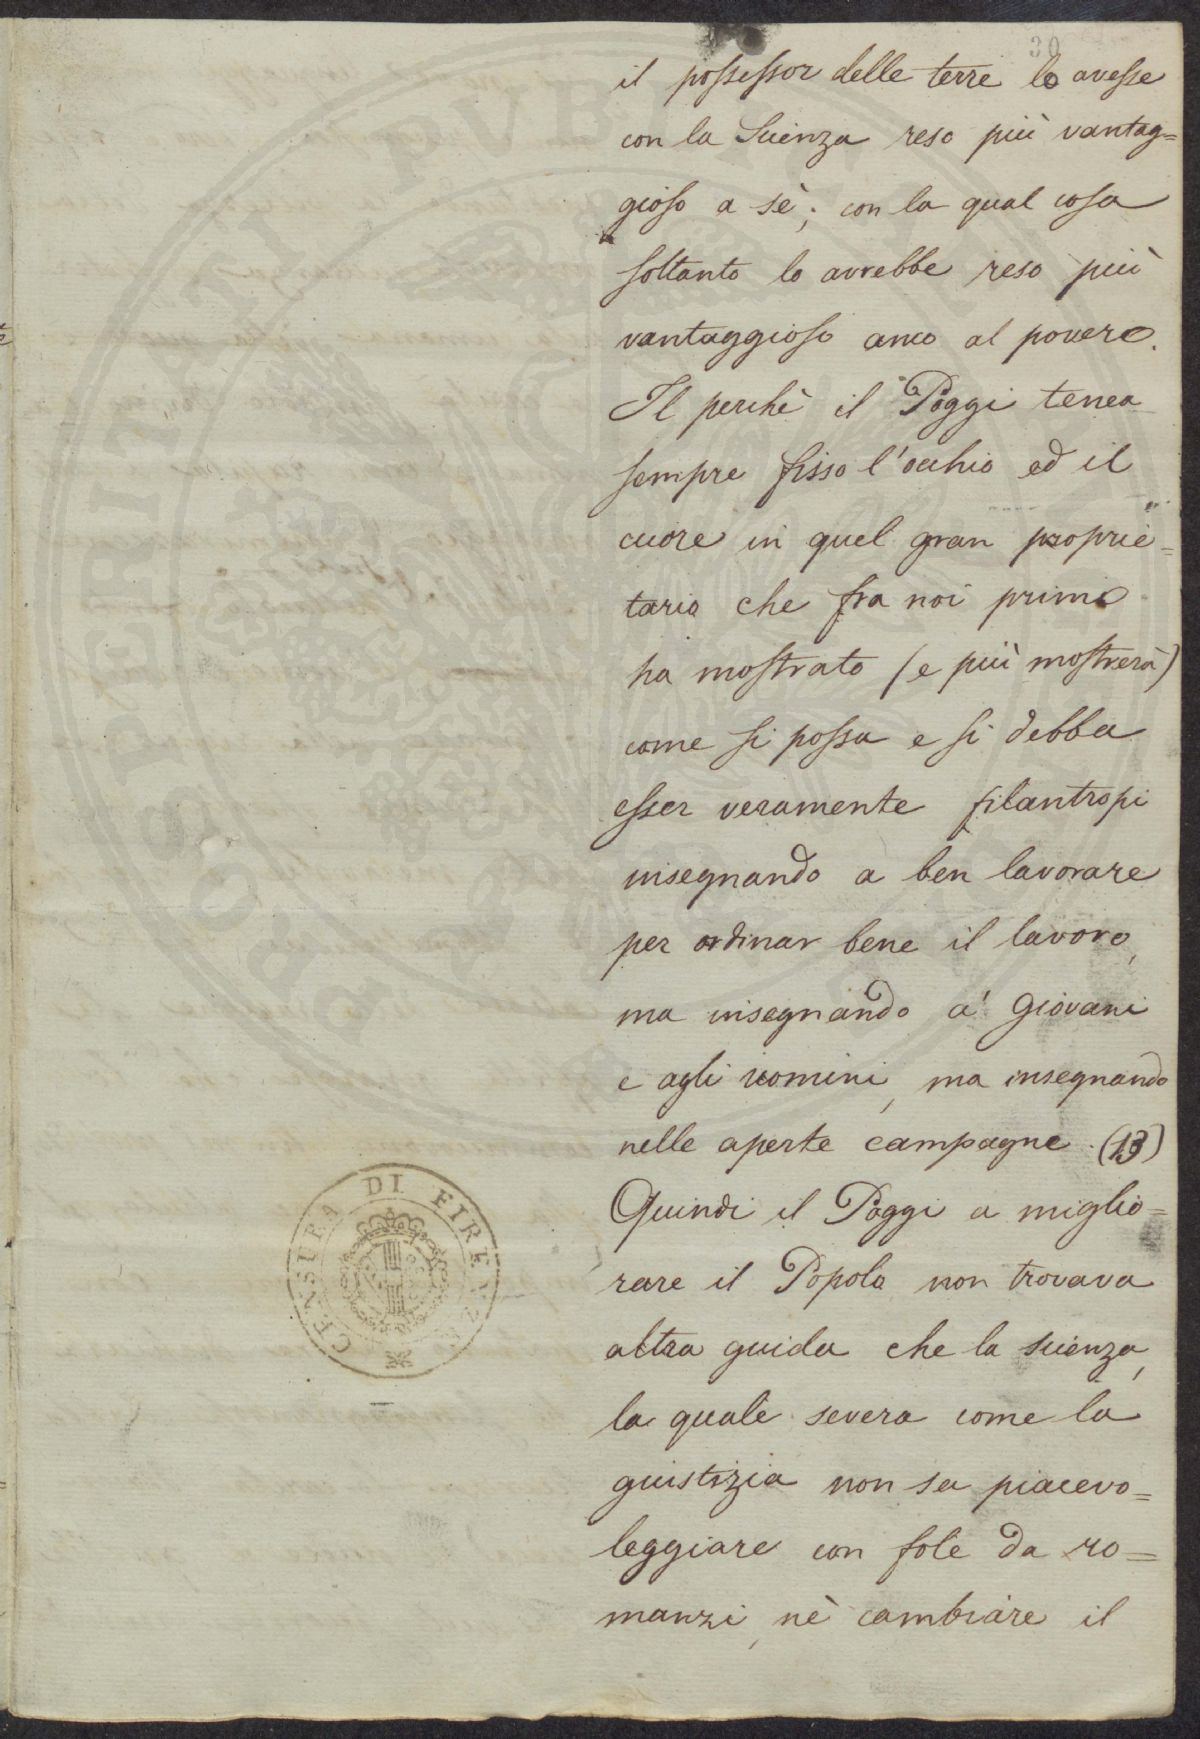 30
il possessor delle terre lo avesse
con la Scienza reso più vantag=
gioso a sè; con la qual cosa
soltanto lo avrebbe reso più
vantaggioso anco al povero.
Il perchè il Poggi tenea
sempre fisso l'occhio ed il
cuore in quel gran proprie=
tario che fra noi primo
ha mostrato (e più mostrerà)
come si possa e si debba
esser veramente filantropi
insegnando a ben lavorare
per ordinar bene il lavoro,
ma insegnando a' giovani
e agli uomini, ma insegnando
nelle aperte campagne. (13)
Quindi il Poggi a miglio=
rare il Popolo non trovava
altra guida che la scienza,
la quale severa come la
giustizia non sa piacevo=
leggiare con fole da ro=
manzi, nè cambiare il
CENSURA DI FIRENZE